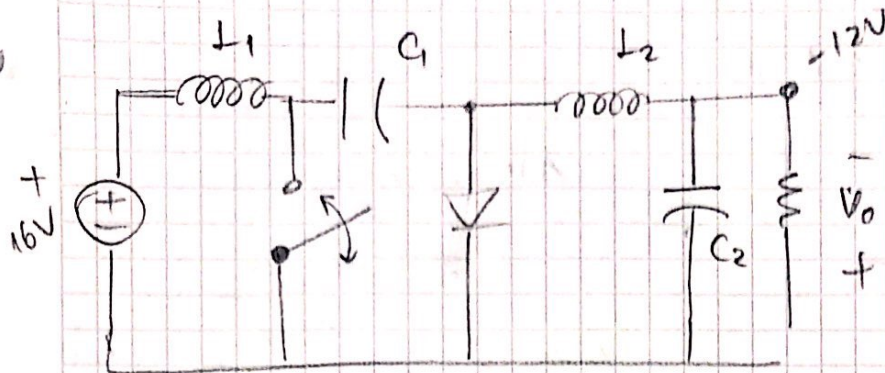 L1 C1 L2 -12V
+
16V
+
-
C2
-
Vo
+